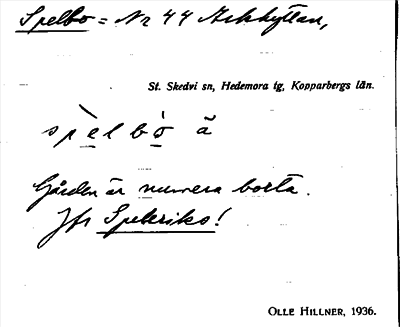 Spelbo = Nr 44 Arkhyttan,
St. Skedvi sn, Hedemora tg, Kopparbergs län.
spèlbò ă
Gården är numera borta.
Jfr Speleriks!
OLLE HILLNER, 1936.